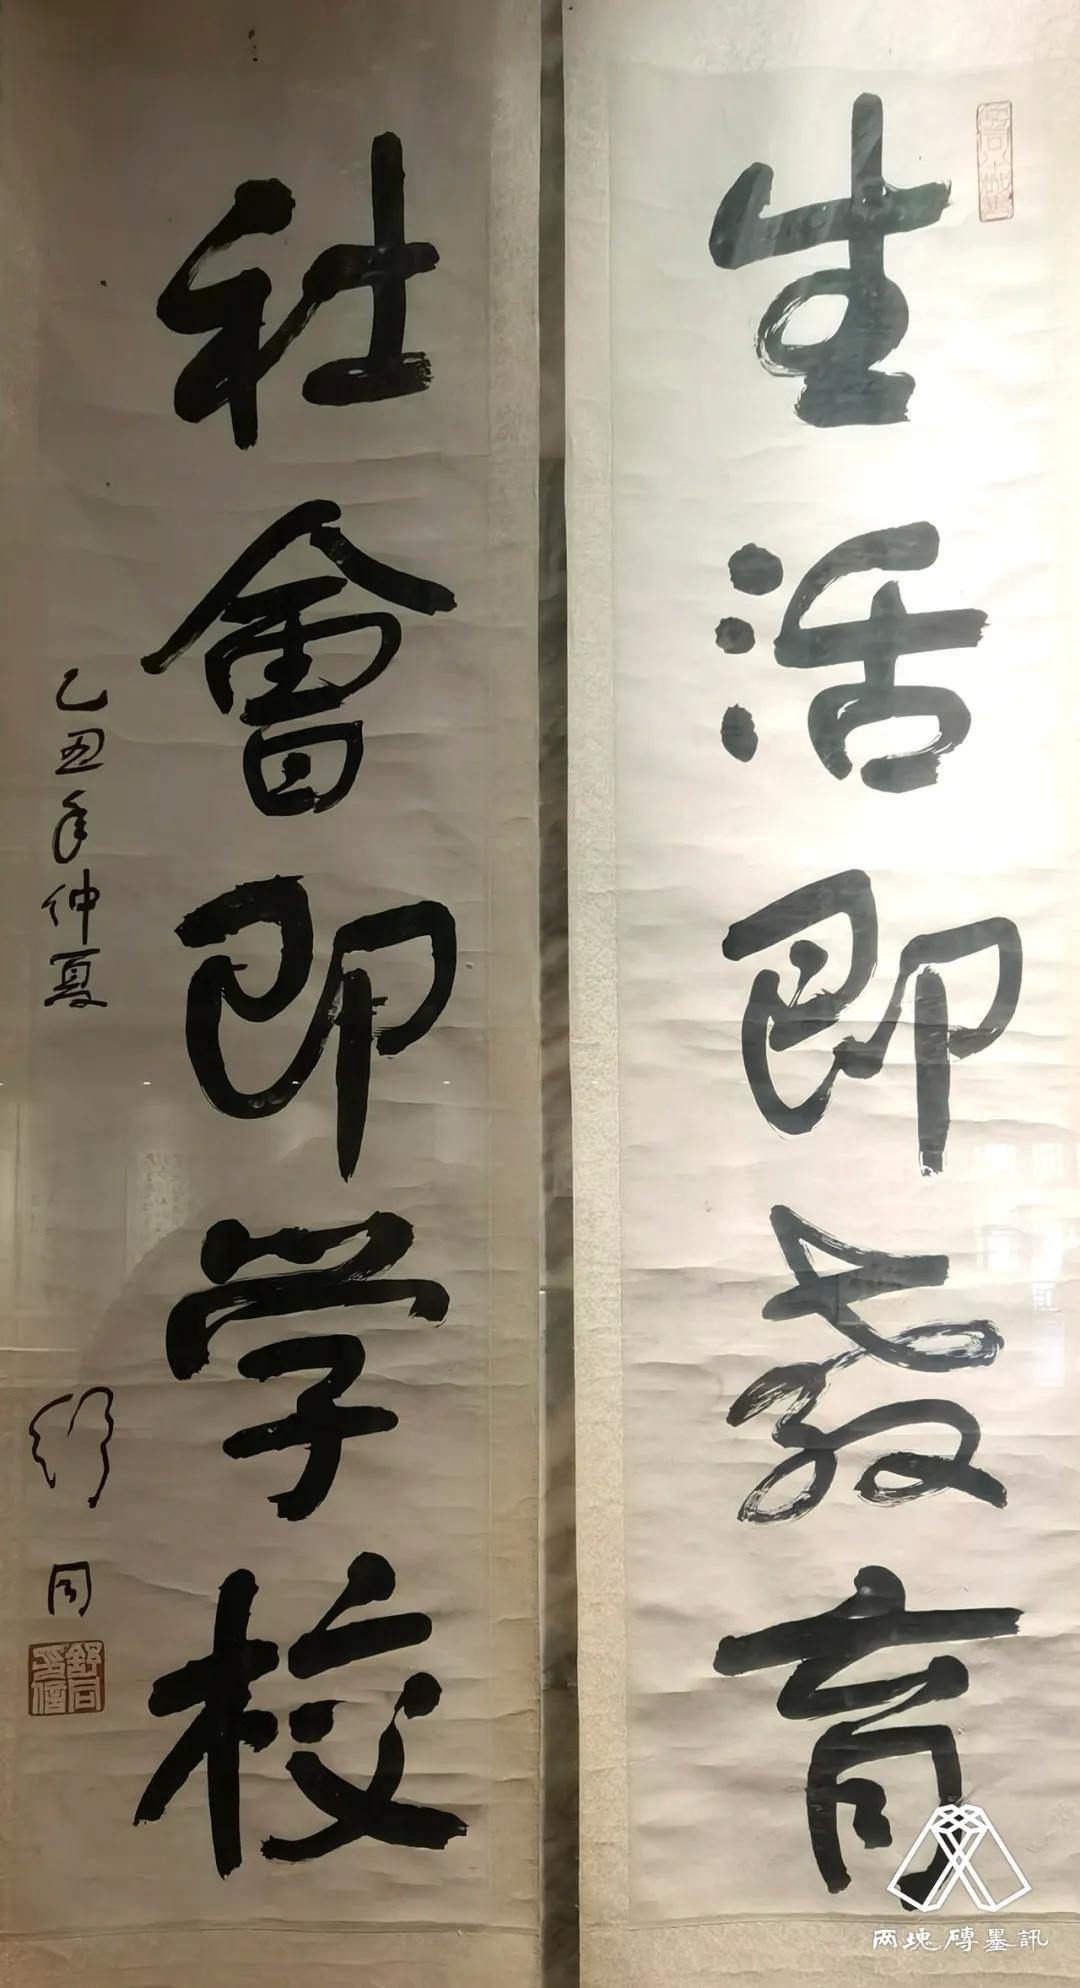 生活即教育
社會即学校
乙丑年仲夏
舒同
舒同
印信
两塊磚墨訊